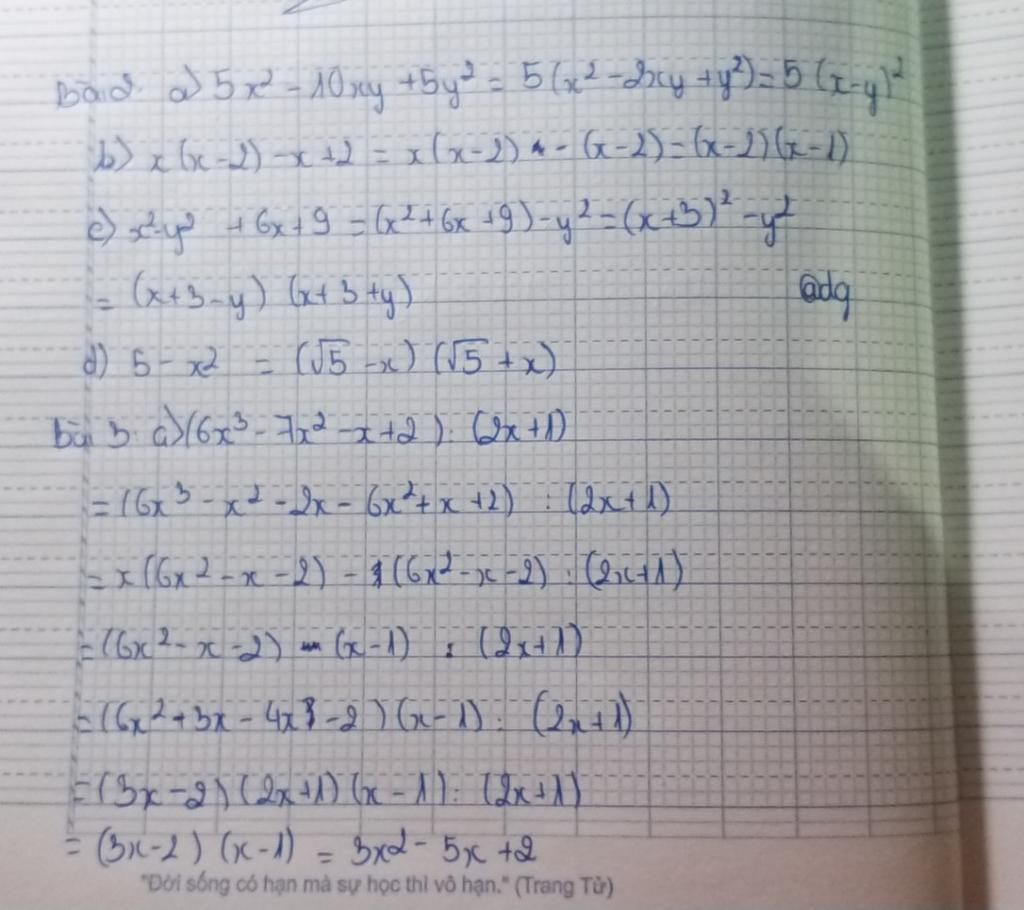 Bài 2: a) 5x² - 10xy + 5y² = 5(x² - 2xy + y²) = 5(x-y)²
b) x(x-2) - x + 2 = x(x-2) - (x-2) = (x-2)(x-1)
c) x² - y² + 6x + 9 = (x² + 6x + 9) - y² = (x+3)² - y²
= (x+3-y) (x+3+y)
@dq
d) 5 - x² = (√5 - x) (√5 + x)
bài 3: a) (6x³ - 7x² - x + 2) : (2x+1)
= (6x³ - x² - 2x - 6x² + x + 2) : (2x+1)
= x(6x² - x - 2) - 1(6x² - x - 2) : (2x+1)
= (6x² - x - 2) (x-1) : (2x+1)
= (6x² + 3x - 4x - 2) (x-1) : (2x+1)
= (3x-2) (2x+1) (x-1) : (2x+1)
= (3x-2) (x-1) = 3x² - 5x + 2
"Đời sống có hạn mà sự học thì vô hạn." (Trang Tử)